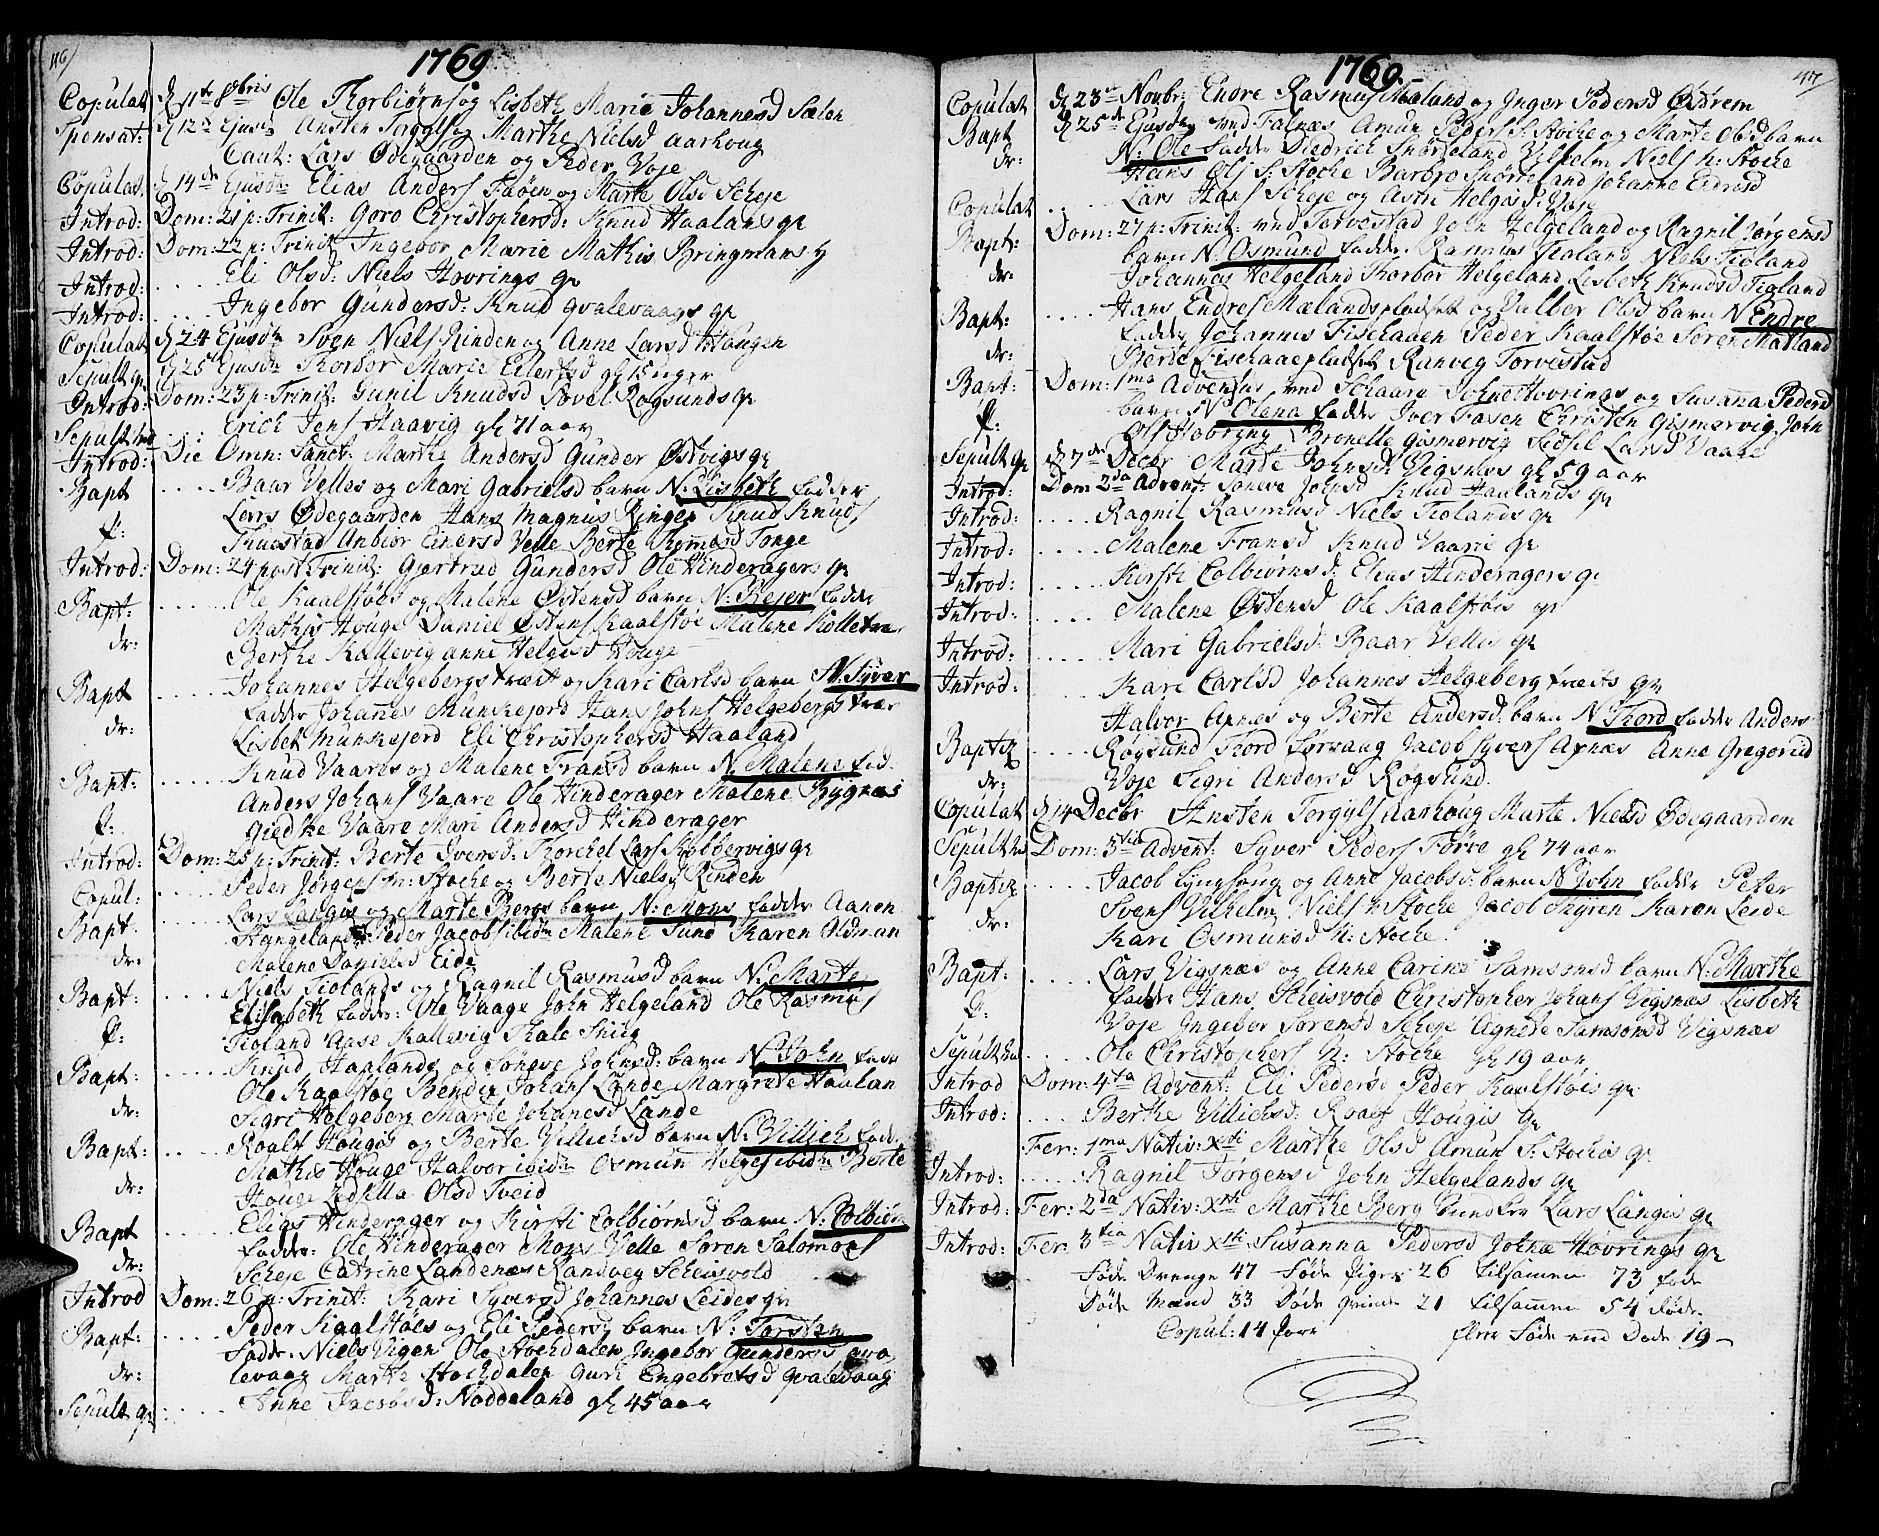 116/
1769
Copulat d 11te 8bris Ole Thorbiørns og Lisbeth Marie Johannesd Sælen
Tpensat: d 12te Ejusd: Ansten Torgyls og Marthe Nielsd Aarhoug
Caut: Lars Ødegaarden og Peder Voje
Copulat. d 14de Ejusd: Elias Anders Faøen og Marte Olsd Scheje
Introd: Dom: 21 p: Trinit: Goro Christophersd: Knud Haalans qv
Introd: Dom: 22 p: Trinit Ingebor Marie Mathis Bringmans H
Introd: ..... Eli Olsd: Niels Hovrings qv
Introd: ..... Ingebor Gundersd: Knud Qvalevaags qv
Copulat d 24 Ejusd: Sven Niels Rinden og Anne Larsd Hougen
Sepult qv d 25de Ejusd: Thorbor Marie Eilertsd gl 15 uger
Introd: Dom: 23 p: Trinit: Gunil Knudsd Povel Rogsunds qv
Sepult ..... Erich Jens Haavig gl 71 aar
Introd: Die Omn: Sanct: Marthe Andersd Gunder Østvigs qv
Bapt ..... Baar Velles og Mari Gabrielsd barn N: Lisbeth fadder
f: Lars Ødegaarden Hans Magnus Ringen Knud Knuds
Truestad Anbior Einersd Velle Berte Tonge
Introd: Dom: 24 post Trinit: Gjertrud Gundersd Ole Hinderagers qv
Bapt: ..... Ole Kaalstøes og Malene Østensd barn N: Rejer fadde
dr: Mathis Houge Daniel Østens Kaalstøe Malene Kolletvæ
Berthe Kallevig Anne Helgesd Houge
Bapt ..... Johannes Helgebergstræet og Kari Carlsd barn N: Syver
dr: fadde Johanes Munkejord Hans Johns Helgebergs træe
Lisbet Munkejord Eli Christophersd Haaland
Bapt: ..... Knud Vaaris og Malene Fransd barn N: Malene fad:
f: Anders Johans Vaare Ole Hinderager Malene Bygnæs
Giedske Vaare Mari Andersd Hinderager
Introd: Dom: 25 p: Trinit: Berte Iversd: Thorchel Lars Kolbervigs qv
Copul: ..... Peder Jørgens n: Stoche og Berte Nielsd Rinden
Bapt ..... Lars Langis og Marte Bergs barn N: Mons fadde Aanen
dr: Stangeland Peder Jacobs ibid: Malene Sund Karen Oldman
Malene Danielsd Eide
Bapt: ..... Niels Tiolands og Ragnil Rasmusd barn N: Marte
f: Elisabeth fadde: Ole Vaage John Helgeland Ole Rasmus
Tioland Aase Kallevig Thale
Bapt: ..... Knud Haalands og Søneve Johnsd: barn N: John fadde
dr: Ole Kaalstøe Bendix Johans Lande Margrete Haalan
Sigri Helgeberg Marte Johanesd Lande
Bapt: ..... Roalf Hougis og Berte Villichsd barn N: Villich fad:
dr: Mathis Houge Halvor ibid: Osmun Helges ibid: Berte
Houge Zidsilla Olsd Tveid
Bapt ..... Elias Hinderager og Kirsti Colbiørnsd barn N: Colbiør
dr: fadde: Ole Hinderager Mons Velle Søren Salomons
Scheje Catrine Landenæs Randveg Scheisvold
Introd Dom: 26 p: Trinit: Kari Syversd Johannes Leides qv
Bapt: ..... Peder Kaalstøes og Eli Pedersd barn N: Torsten
dr: fadde: Niels Vigen Ole Stochdalen Ingebor Gundersd qva
levaag Marte Stochdalen Guri Engebretsd Qvalevaag
Sepult qv ..... Anne Jacobsd: Nodoeland gl 45 aar
117
1769
Copulat d 23de Novbr: Endre Rasmus Mæland og Inger Pedersd Østrem
Bapt d 25de Ejusd: ved Falnæs Amun Peders S: Stoche og Marte Olsd barn
dr: N: Ole fadde Diedrich Snørteland Vilhelm Niels n: Stoche
Hans Ols S: Stoche Barbro Snørteland Johanne Endresd
Copulat ..... Lars Hans Scheje og Astri Helgesd: Voje
Bapt: Dom: 27 p: Trinit: ved Torvestad John Helgeland og Ragnil Jørgensd
dr: barn N: Osmund fadde. Rasmus Tioland Niels Tioland
Johannes Helgeland Thorbor Helgeland Lisbeth Knudsd Tioland
Bapt: ..... Hans Endres Mælandspladset og Valber Olsd barn N Endre
dr: fadde Johannes Fischaaen Peder Kaalstøe Søren Mæland
Berte Fischaaepladset Ranveg Torvestad
Bapt: Dom: 1ma Adventus ved Schaare Johne Hovrings og Susanna Pedersd
f: barn N: Olena fadde Iver Fasen Christen Gismarvig John
Ols Hovring Bronelle Gismarvig Sidsel Larsd Vaage
Sepult qv d 7de Decbr Marte Johnsd Vigsnæs gl 59 aar
Introd: Dom: 2da Advent: Søneve Johnsd Knud Haalands qv
Introd: ..... Ragnil Rasmusd Niels Tiolands qv
Introd: ..... Malene Fransd Knud Vaaris qv
Introd: ..... Kirsti Colbiørnsd: Elias Hinderagers qv
Introd: ..... Malene Østensd Ole Kaalstøis qv
Introd: ..... Mari Gabrielsd: Baar Velles qv
Introd: ..... Kari Carlsd Johannes Helgebergtræets qv
Baptiz ..... Halvor Apnæs og Berte Andersd: barn N: Thord fadde Anders
dr: Røgsund Thord Sørvaag Jacob Syvers Apnæs Anne Gregorisd
Voje Sigri Andersd Røgsund.
Copulat d 14 Decbr Ansten Torgyls Aarhoug Marte Nielsd Ødegaarden
Sepult Dom: 3tia Advent: Syver Peders Førre gl 74 aar
Baptiz ..... Jacob Lynghoug og Anne Jacobsd: barn N: John fadde Peter
dr: Svens Vilhelm Niels n: Stoche Jacob Skyren Karen Leide
Kari Osmunsd N: Stoche.
Bapt: ..... Lars Vigsnæs og Anne Carine Samsonsd barn N: Marthe
f: fadde Hans Scheisvold Christopher Johans Vigsnæs Lisbeth
Voje Ingebor Sørensd Scheje Agnete Samsonsd Vigsnæs
Sepult ..... Ole Christophers N: Stoche gl 19 aar
Introd Dom: 4ta Advent: Eli Pedersd Peder Kaalstøis qv
Introd: ..... Berthe Villichsd: Roalf Hougis qv
Fer: 1ma Nativ: Xsti Marthe Olsd Amun S: Stochis qv
Introd: ..... Ragnil Jørgensd John Helgelands qv
Introd: Fer: 2da Nativ: Xsti Marthe Berg Lars Langis qv
Introd: Fer: 3tia Nativ Xsti Susanna Pedersd Johne Hovrings qv
Føde Drenge 47 Føde Piger 26 tilsamen 73 føde
Døde Mænd 33 Døde Qvinde 21 tilsamen 54 døde.
Copul: 14 Parr flere Føde end Døde 19 -